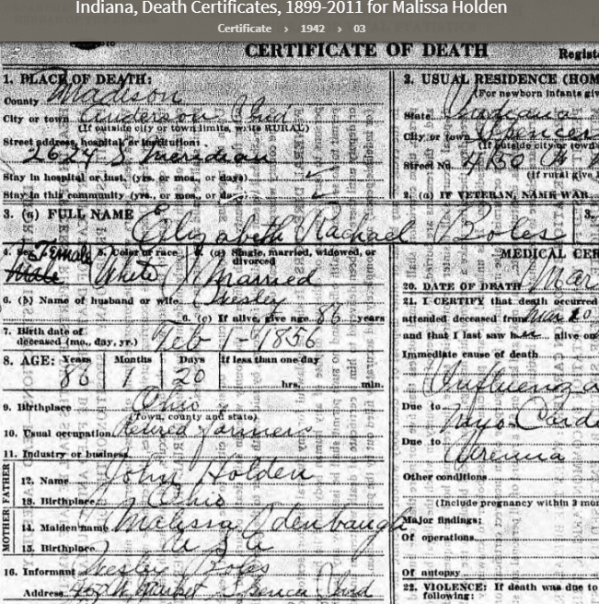 Indiana, Death Certificates, 1899-2011 for Malissa Holden
Certificate › 1942 › 03
CERTIFICATE OF DEATH
1. PLACE OF DEATH:
County Madison
City or town Anderson Ind
(If outside city or town limits, write RURAL)
Street address, hospital or institution:
2624 S Meridian
Stay in hospital or inst. (yrs. or mos. or days)
Stay in this community (yrs. or mos. or days)
2. USUAL RESIDENCE (HOM
(For newborn infants giv
State Indiana
City or town Spencer
(If outside city or town
Street No.
(If rural give l
2. (a) IF VETERAN, NAME WAR
3. (a) FULL NAME Elizabeth Rachael Boles
3.
4. Sex Female Male 5. Color or race White 6. (a) Single, married, widowed, or divorced Married
6. (b) Name of husband or wife Wesley
6. (c) If alive, give age 86 years
7. Birth date of deceased (mo., day, yr.) Feb 1-1856
8. AGE: Years 86 Months 1 Days 20 If less than one day hrs. min.
9. Birthplace Ohio
(Town, county and state)
10. Usual occupation Retired farmers
11. Industry or business
FATHER
12. Name John Holden
13. Birthplace Ohio
MOTHER
14. Maiden name Melissa Odenbaugh
15. Birthplace U S A
16. Informant Wesley Boles
Address Spencer Ind
MEDICAL CER
20. DATE OF DEATH Mar
21. I CERTIFY that death occurred
attended deceased from Mar 20
and that I last saw her alive on
Immediate cause of death
Influenza
Due to Myo Carde
Due to Uremia
Other conditions
(Include pregnancy within 3 mon
Major findings:
Of operations
Of autopsy
22. VIOLENCE: If death was due to
following: